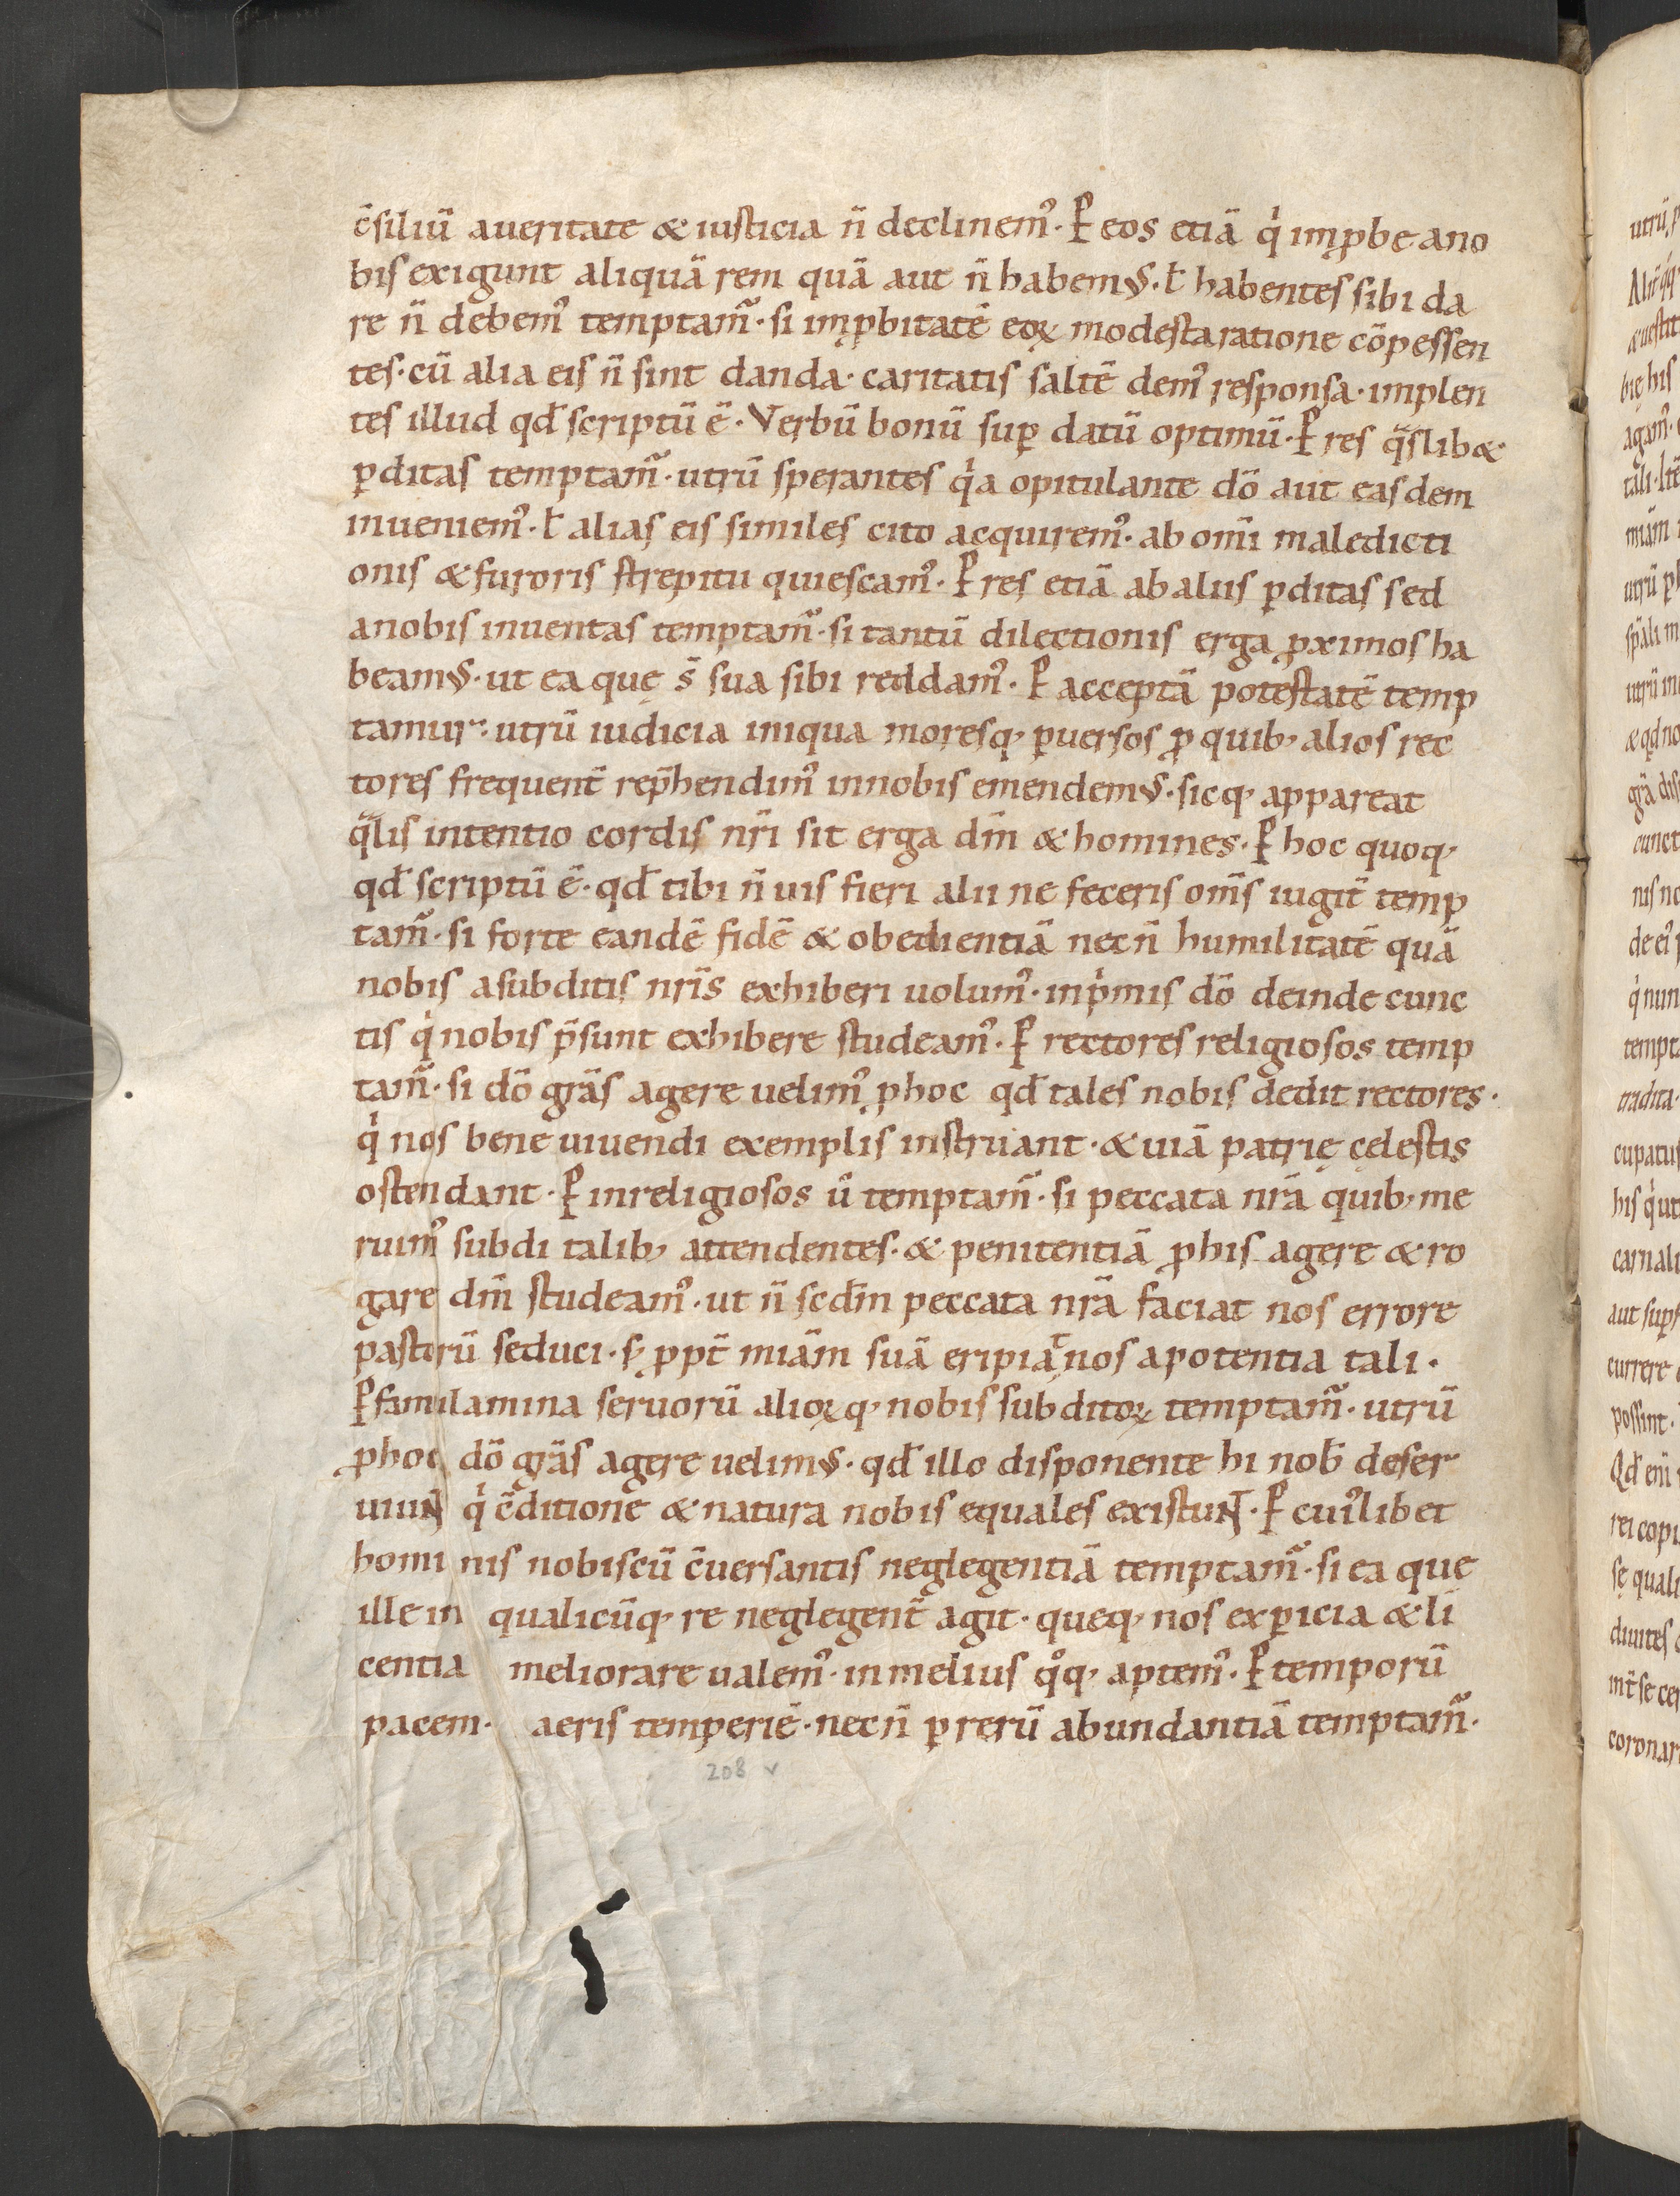 c̄siliū aueritate & iusticia n̄ declinem᷒. Ꝑ eos etiā q̇ imꝓbe ano
bis exigunt aliquā rem quā aut n̄ habemus. ł habentes sibi da
re n̄ debem᷒ temptam̃. si imꝓbitatē eoꝝ modesta ratione cōpessen
tes. cū alia eis n̄ sint danda. caritatis saltē dem᷒ responsa. implen
tes illud qđ scriptū ē. Verbū bonū suꝑ datū optimū. Ꝑ res q̃slib&
ꝑditas temptam̃. utrū sperantes q̇a opitulante dō aut easdem
inueniem᷒. ł alias eis similes cito acquirem᷒. ab om̄i maledicti
onis & furoris strepitu quiescam᷒. Ꝑ res etiā ab aliis ꝑditas sed
anobis inuentas temptam̃. si tantū dilectionis erga ꝓximos ha
beamus. ut ea quę s̄ sua sibi reddam᷒. Ꝑ acceptā potestatē temp
tamur. utrū iudicia iniqua moresq, ꝑuersos ꝓ quib, alios rec
tores frequent̄ rep̄hendim᷒ innobis emendemus. sicq, appareat
q̃lis intentio cordis nr̄i sit erga dm̄ & homines. Ꝑ hoc quoq,
qđ scriptū ē. qđ tibi n̄ uis fieri alii ne feceris om̄s iugit̄ temp
tam̃. si forte eandē fidē & obedientiā necn̄ humilitatē quā
nobis asubditis nr̄is exhiberi uolum᷒. inp̍mis dō deinde cunc
tis q̇ nobis p̄sunt exhibere studeam᷒. Ꝑ rectores religiosos temp
tam̃. si dō grās agere uelim᷒ ꝓhoc qđ tales nobis dedit rectores.
q̇ nos bene uiuendi exemplis instruant. & uiā patrię cęlestis
ostendant. Ꝑ inreligiosos ů temptam̃. si peccata nr̄a quib, me
ruim᷒ subdi talib, attendentes. & penitentiā ꝓhis agere & ro
gare dm̄ studeam᷒. ut n̄ scđm peccata nr̄a faciat nos errore
pastorū seduci. s; ꝓpt̄ miām suā eripiat nos apotentia tali.
Ꝑ famulamina seruorū alioꝝq, nobis subditoꝝ temptam̃. utrū
ꝓhoc dō grās agere uelimus. qđ illo disponente hi nob̄ deser
uiunt q̇ c̄ditione & natura nobis equales existunt. Ꝑ cui᷒libet
hominis nobiscū c̄uersantis neglegentiā temptam̃. si ea que
ille in qualicūq, re neglegent̄ agit. queq, nos exꝑicia & li
centia meliorare ualem᷒. inmelius q̊q, aptem᷒. Ꝑ temporū
pacem. aeris temperiē. necn̄ ꝑ rerū abundantiā temptam̃.
208 v